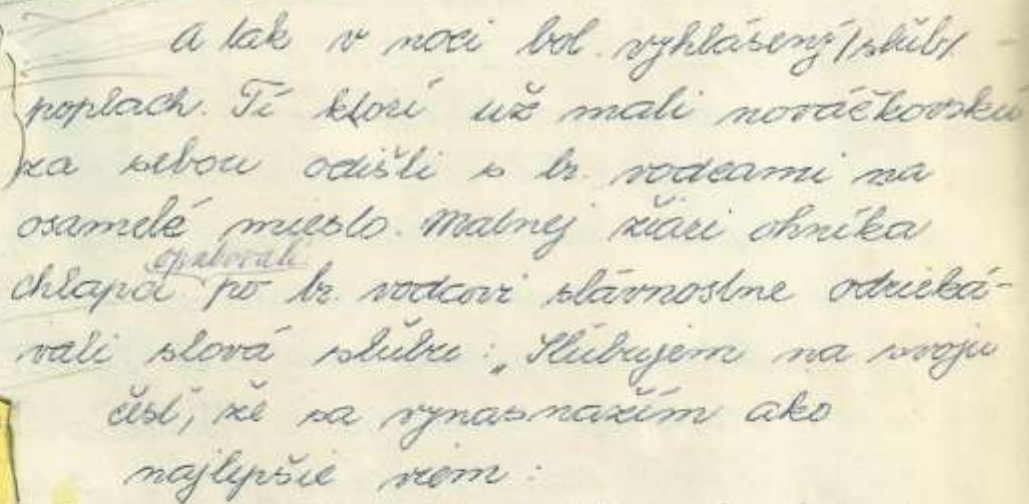 A tak v noci bol vyhlásený /slúb/
poplach. Tí ktorí už mali nováčkovskú
za sebou odišli s br. vodcami na
osamelé miesto. Matnej žiari ohníka
opakovali
chlapci po br. vodcovi slávnostne odrieká-
vali slová slúbu: „Slúbujem na svoju
česť, že sa vynasnažím ako
najlepšie viem: